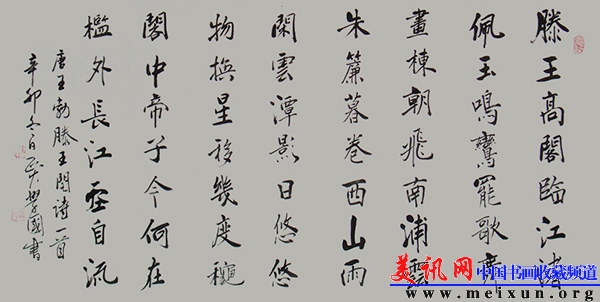 滕王高閣臨江渚
佩玉鳴鸞罷歌舞
畫棟朝飛南浦雲
朱簾暮卷西山雨
閑雲潭影日悠悠
物換星移幾度穐
閣中帝子今何在
檻外長江空自流
唐王勃滕王閣詩一首
辛卯冬日國書
美讯网 中国书画收藏频道
www.meixun.org